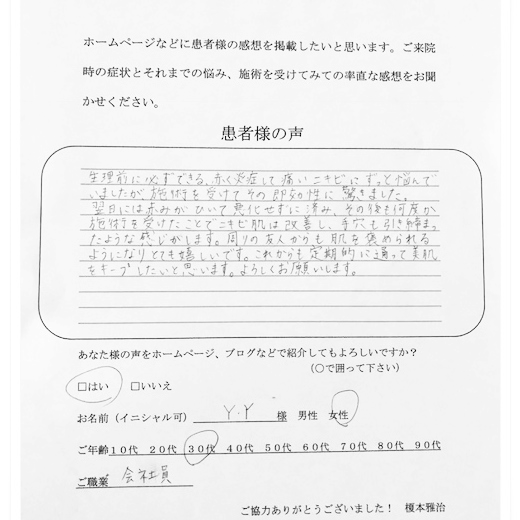 ホームページなどに患者様の感想を掲載したいと思います。ご来院
時の症状とそれまでの悩み、施術を受けてみての率直な感想をお聞
かせください。
患者様の声
生理前に必ずできる、赤く炎症して痛いニキビにずっと悩んで
いましたが施術を受けてその即効性に驚きました。
翌日には赤みがひいて悪化せずに済み、その後も何度か
施術を受けたことでニキビ肌は改善し、毛穴も引き締まっ
たような感じがします。周りの友人からも肌を褒められる
ようになりとても嬉しいです。これからも定期的に通って美肌
をキープしたいと思います。よろしくお願いします。
あなた様の声をホームページ、ブログなどで紹介してもよろしいですか？
（○で囲って下さい）
□はい □いいえ
お名前（イニシャル可） Y.Y 様 男性 女性
ご年齢 10代 20代 30代 40代 50代 60代 70代 80代 90代
ご職業 会社員
ご協力ありがとうございました！ 榎本雅治